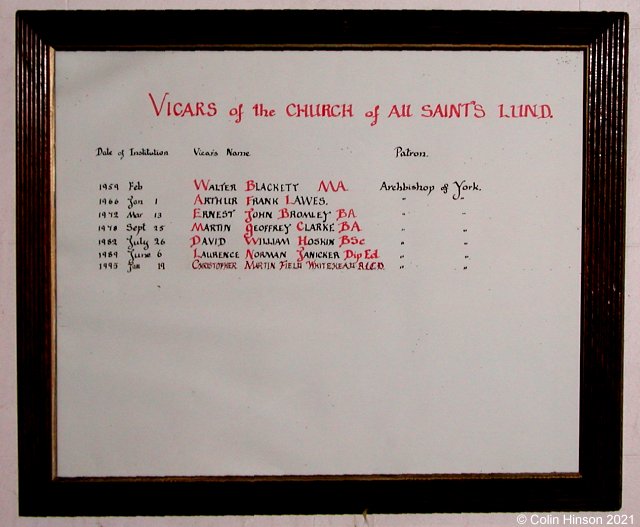 VICARS of the CHURCH of All SAINTS LUND.
Date of Institution Vicars Name Patron.
1959 Feb WALTER BLACKETT MA. Archbishop of York.
1966 Jan 1 ARTHUR FRANK LAWES. " "
1972 Mar 13 ERNEST JOHN BROMLEY BA " "
1978 Sept 25 MARTIN GEOFFREY CLARKE BA " "
1982 July 26 DAVID WILLIAM HOSKIN BSc " "
1989 June 6 LAURENCE NORMAN JANICKER Dip Ed " "
1995 Jan 19 CHRISTOPHER MARTIN FIELD WHITEHEAD " "
© Colin Hinson 2021